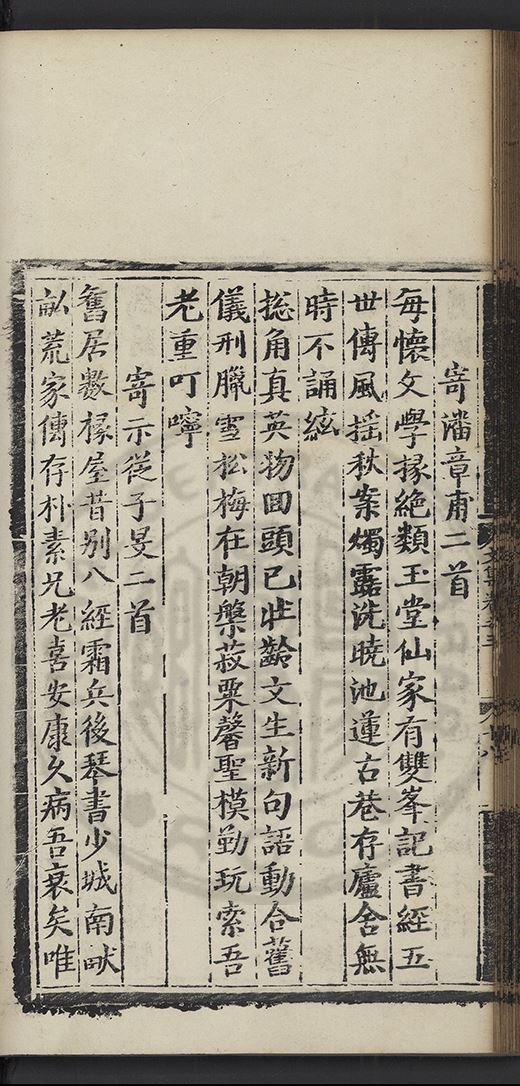 寄潘章甫二首
每懷文學掾絕類玉堂仙家有雙峯記書經五
世傳風搖秋案燭露洗曉池蓮古巷存廬舍無
時不誦絃
揔角真英物囬頭已壯齡文生新句語動合舊
儀刑臘雪松梅在朝槃菽粟馨聖模勤玩索吾
老重叮嚀
寄示從子旻二首
舊居數椽屋昔别八經霜兵後琴書少城南畎
畝荒家傳存朴素兄老喜安康久病吾衰矣唯